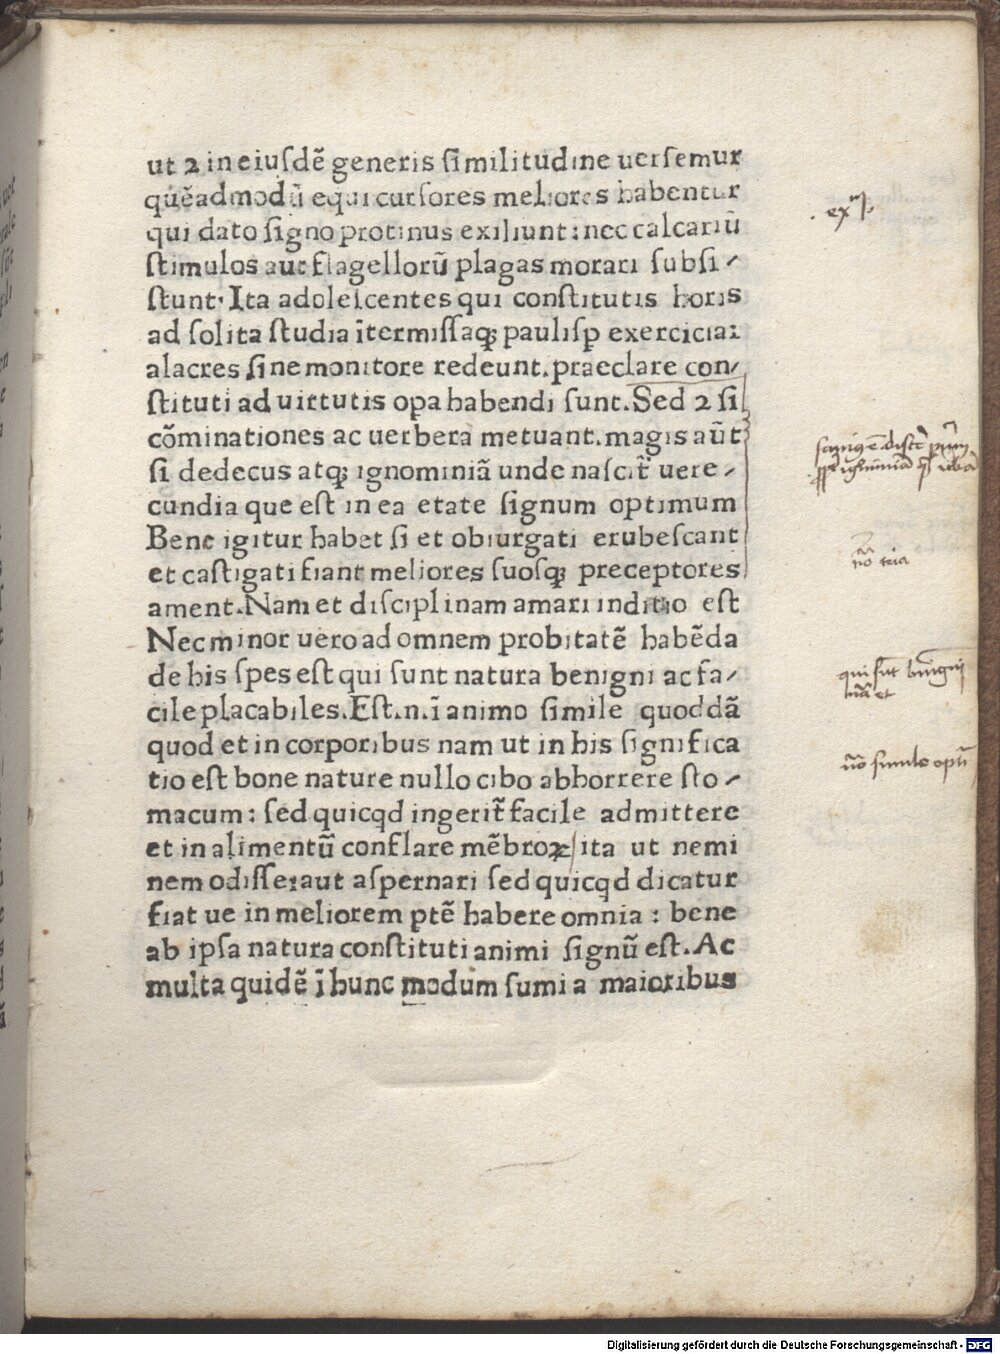 ut 2 in eiuſdē generis ſimilitudine uerſemur
quēadmodū equi curſores meliores habentur
qui dato ſigno protinus exiliunt: nec calcariū
ſtimulos aut flagellorū plagas morari ſubſi⸗
ſtunt. Ita adoleſcentes qui conſtitutis horis
ad ſolita ſtudia ītermiſſaqꝫ pauliſꝑ exercicia:
alacres ſine monitore redeunt. praeclare con⸗
ſtituti ad uirtutis opa habendi ſunt. Sed 2 ſi
cōminationes ac uerbera metuant. magis aūt
ſi dedecus atqꝫ ignominiā unde naſcit̄ uere⸗
cundia que eſt in ea etate ſignum optimum
Bene igitur habet ſi et obiurgati erubeſcant
et caſtigati fiant meliores ſuoſqꝫ preceptores
ament. Nam et diſciplinam amari inditio eſt
Nec minor uero ad omnem probitatē habēda
de his ſpes eſt qui ſunt natura benigni ac fa⸗
cile placabiles. Eſt .n. ī animo ſimile quoddā
quod et in corporibus nam ut in his ſignifica
tio eſt bone nature nullo cibo abhorrere ſto⸗
macum: ſed quicqd ingerit̄ facile admittere
et in alimentū conflare mēbroꝝ ita ut nemi
nem odiſſe: aut aſpernari ſed quicqd dicatur
fiat ue in meliorem ptē habere omnia: bene
ab ipſa natura conſtituti animi ſignū eſt. Ac
multa quidē ī hunc modum ſumi a maioribus
Digitalisierung gefördert durch die Deutsche Forschungsgemeinschaft - DFG